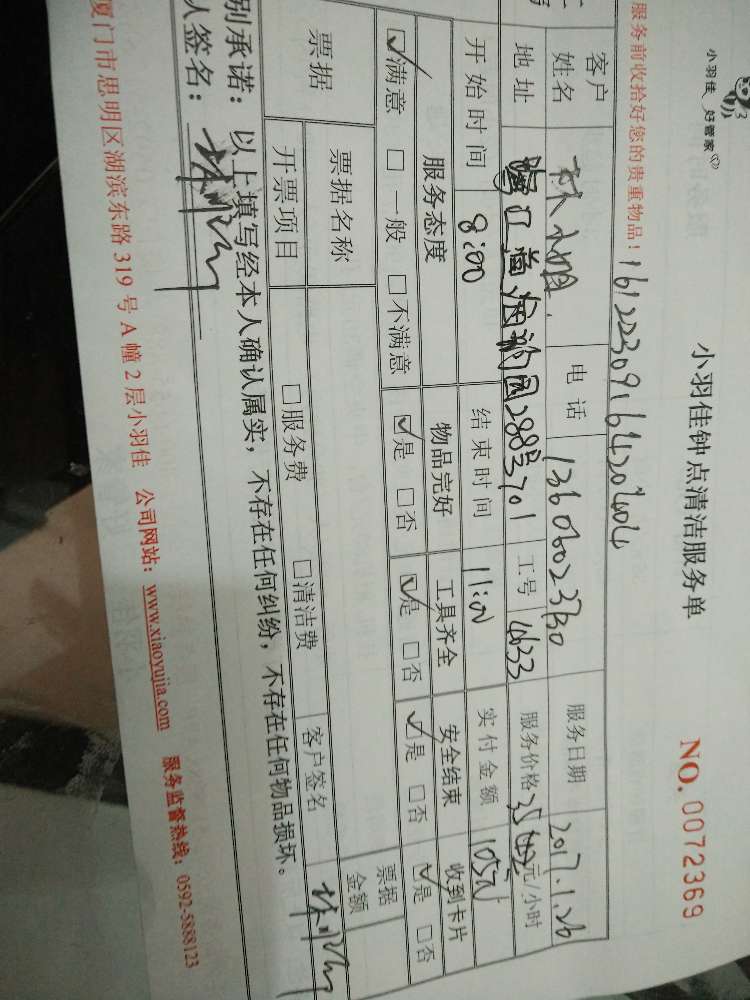 小羽佳 好管家
小羽佳钟点清洁服务单
NO. 0072369
服务前收拾好您的贵重物品！16122230916420404
客户姓名 林小姐 电话 服务日期 2017.1.26
地址 288号701 工号 服务价格 35 元/小时
开始时间 8:00 结束时间 11:00 实付金额 105元
服务态度 物品完好 工具齐全 安全结束 收到卡片
☑满意 □一般 □不满意 ☑是 □否 ☑是 □否 ☑是 □否 ☑是 □否
票据 票据名称 票据金额
开票项目 □服务费 □清洁费 客户签名
别承诺：以上填写经本人确认属实，不存在任何纠纷，不存在任何物品损坏。
人签名：
厦门市思明区湖滨东路 319 号 A 幢 2 层小羽佳 公司网站：www.xiaoyujia.com 服务监督热线：0592-5888123